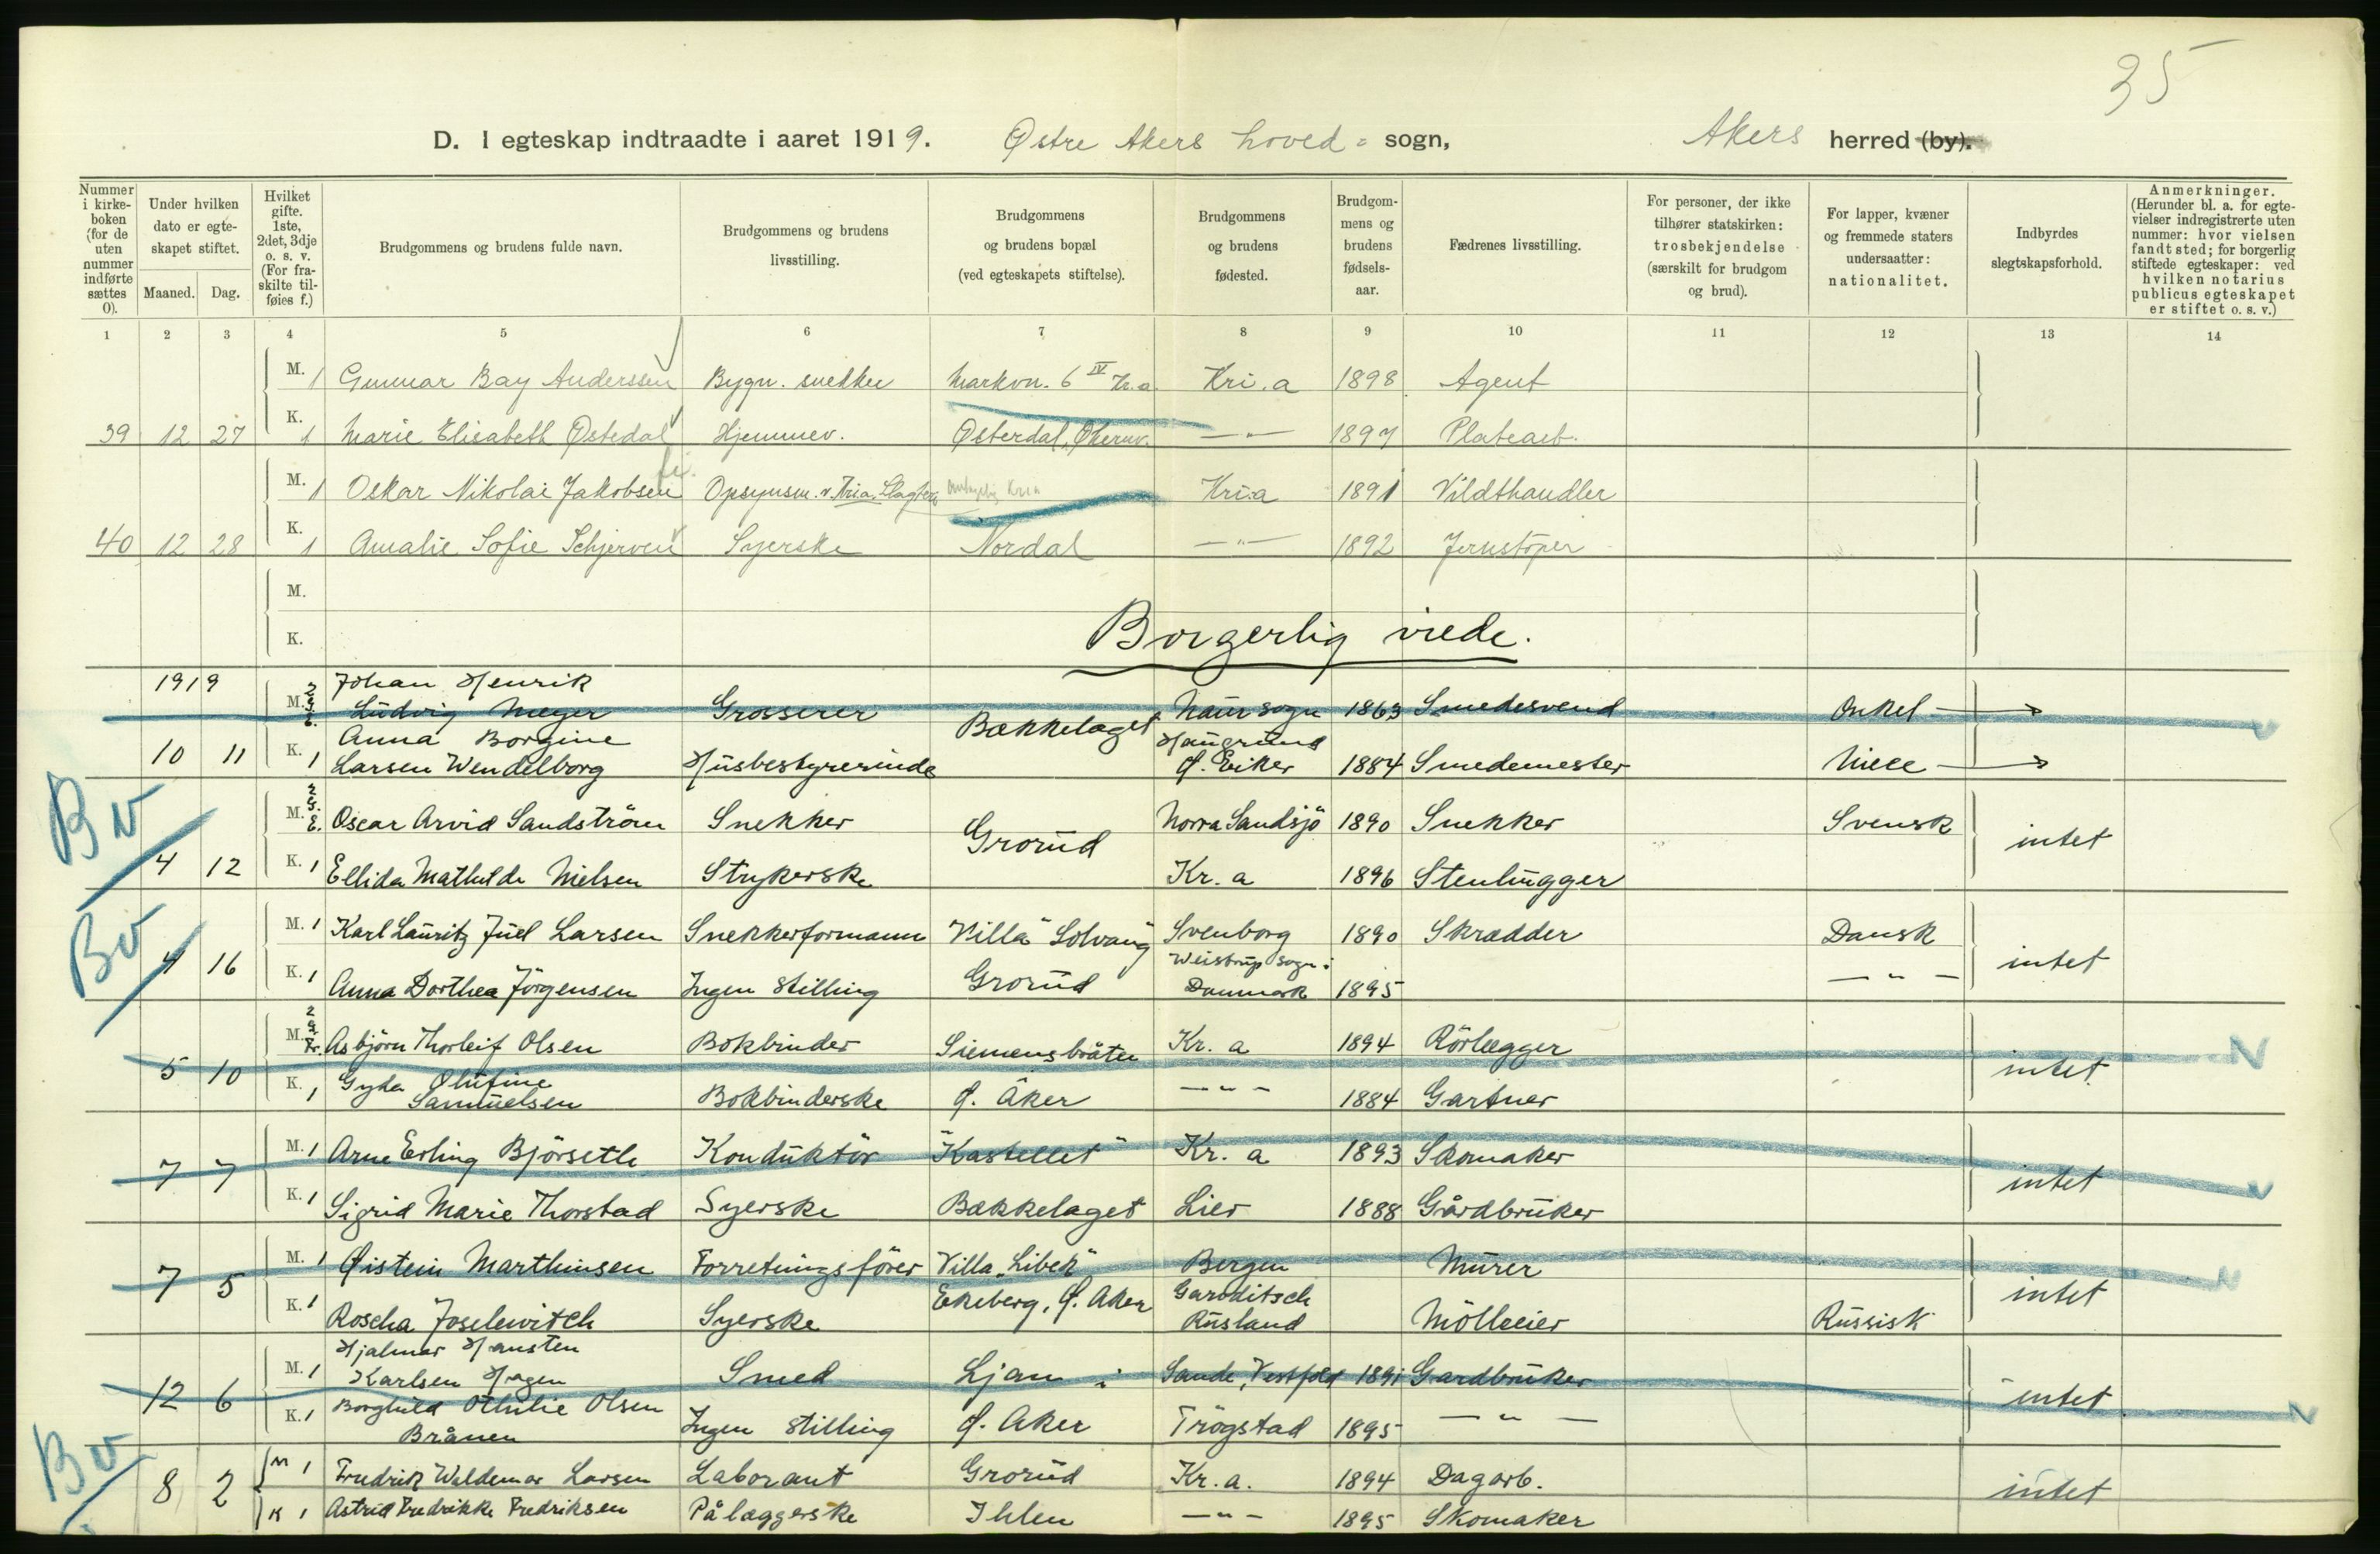 35
D. I egteskap indtraadte i aaret 1919. Østre Akers hoved- sogn, Akers herred (by).
Nummer i kirke-boken (for de uten nummer indførte sættes 0).
Under hvilken dato er egte-skapet stiftet.
Maaned. Dag.
Hvilket gifte. 1ste, 2det, 3dje o. s. v. (For fra-skilte til-føies f.)
Brudgommens og brudens fulde navn.
Brudgommens og brudens livsstilling.
Brudgommens og brudens bopæl (ved egteskapets stiftelse).
Brudgommens og brudens fødested.
Brudgom-mens og brudens fødsels-aar.
Fædrenes livsstilling.
For personer, der ikke tilhører statskirken: trosbekjendelse (særskilt for brudgom og brud).
For lapper, kvæner og fremmede staters undersaatter: nationalitet.
Indbyrdes slegtskapsforhold.
Anmerkninger. (Herunder bl. a. for egte-vielser indregistrerte uten nummer: hvor vielsen fandt sted; for borgerlig stiftede egteskaper: ved hvilken notarius publicus egteskapet er stiftet o. s. v.)
1 2 3 4 5 6 7 8 9 10 11 12 13 14
M. 1 Gunnar Bay Anderssen Bygn. snekker Markvn. 6 IV Kr.a Kri.a 1898 Agent
39 12 27 K. 1 Marie Elisabeth Østedal Hjemmev. Østerdal, Økernv. —"— 1897 Platearb.
M. 1 Oskar Nikolai Jakobsen Opsynsm. v. Kria. Slagteh. Kri.a 1891 Vildthandler
40 12 28 K. 1 Amalie Sofie Schjerven Syerske Nordal —"— 1892 Jernstöper
M.
K.
Borgerlig viede.
1919 Johan Henrik
M. 2 g. E. Ludvig Meyer Grosserer Bækkelaget Naur sogn 1863 Smedesvend Onkel →
Anna Borgine Haugrund
10 11 K. 1 Larsen Wendelborg Husbestyrerinde Ø. Eiker 1884 Smedemester Niece →
Bv
M. 2 g. E. Oscar Arvid Sandström Snekker Grorud Norra Sandsjö 1890 Snekker Svensk intet
4 12 K. 1 Ellida Mathilde Nielsen Strykerske Kr. a 1896 Stenhugger
Bv
M. 1 Karl Lauritz Juel Larsen Snekkerformann Villa "Solvang" Svenborg 1890 Skrædder Dansk intet
4 16 K. 1 Anna Dorthea Jörgensen Ingen stilling Grorud Weistrup sogn i Danmark 1895 — " —
M. 2 g. Fr. Asbjörn Thorleif Olsen Bokbinder Siemensbråten Kr. a 1894 Rörlægger intet N
5 10 K. 1 Gyda Olufine Samuelsen Bokbinderske Ø. Åker — " — 1884 Gartner
M. 1 Arne Erling Björseth Konduktör "Kastellet" Kr. a 1893 Skomaker intet N
7 7 K. 1 Sigrid Marie Thorstad Syerske Bækkelaget Lier 1888 Gårdbruker
M. 1 Øistein Marthinsen Forretningsförer Villa "Libek" Bergen Murer intet N
7 5 K. 1 Roscha Joselewitch Syerske Ekeberg, Ø. Aker Garoditsch Rusland Mölleeier Russisk
Hjalmar Hansten
M. 1 Karlsen Hagen Smed Ljan i Sande, Vestfold 1891 Gardbruker intet N
12 6 K. 1 Borghild Othilie Olsen Brånen Ingen stilling Ø. Aker Trögstad 1895 — " —
Bv
M 1 Fredrik Waldemar Larsen Laborant Grorud Kr. a. 1894 Dagarb. intet
8 2 K 1 Astrid Fredrikke Fredriksen Pålæggerske Ihlen — " — 1895 Skomaker